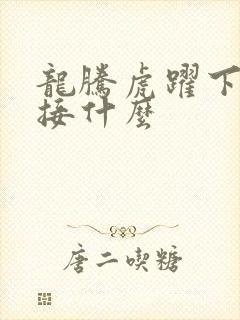 龍騰虎躍下
接什麼
唐二喫糖